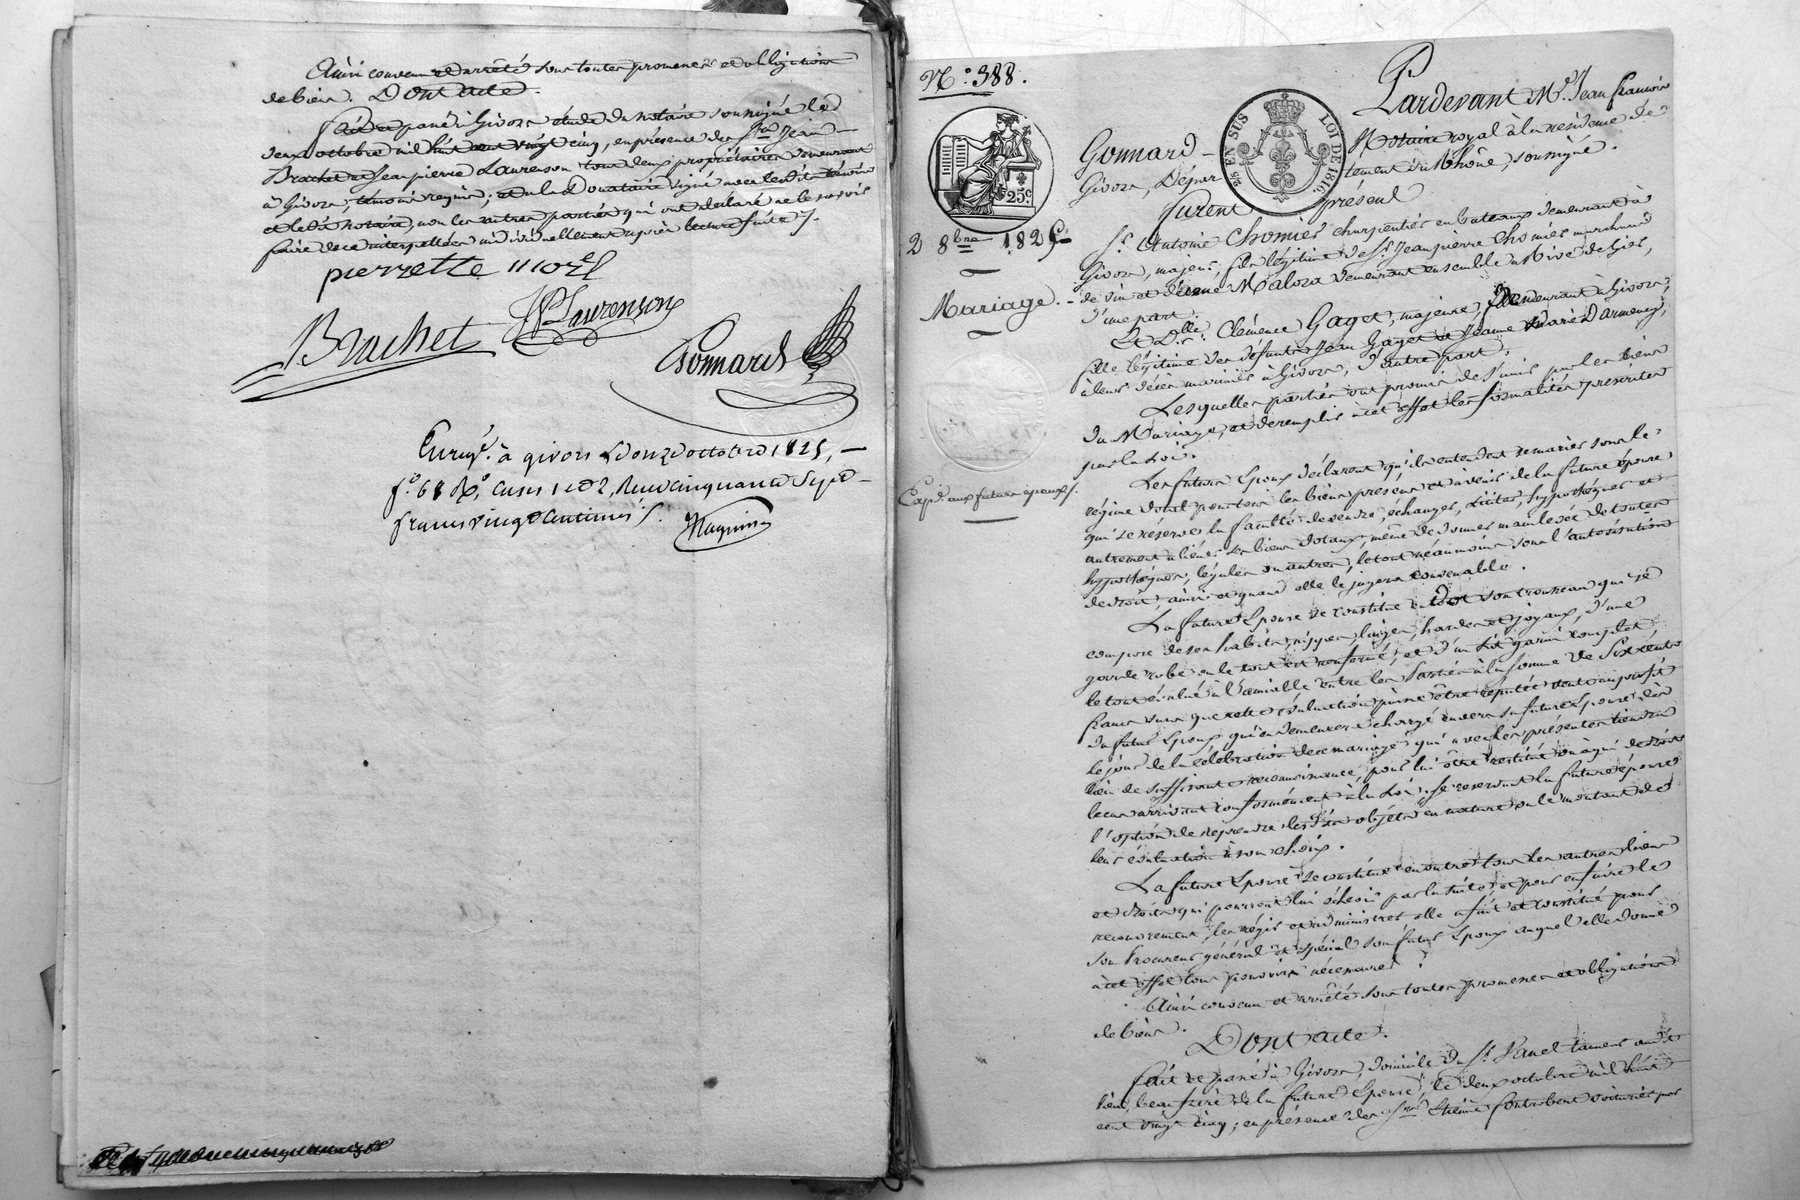 Ainsi convenu et arrêté sous toutes promesses et obligations
de biens. Dont acte.
Fait et passé à Givors étude du notaire soussigné le
deux octobre mil huit cent vingt cinq, en présence des Srs Jean
Brachet et Jean pierre Laurenson tous deux propriétaires demeurant
à Givors, témoins requis; et la donataire signé avec lesdits témoins
et ledit notaire, non les autres parties qui ont déclaré ne le savoir
faire de ce interpellées individuellement après lecture faite /.
pierrette morel
Brachet
JP Laurenson
Gonnard
Enregé. à givors le onze octobre 1825,
fo. 68 Ro. cases 1 et 2, Reçu cinquante sept
francs vingt centimes /.
No. 388.
25c
2/5 EN SUS
LOI DE 1816.
2 8bre 1825
Mariage.
Expn. aux futurs époux /.
Pardevant Me. Jean françois
Gonnard Notaire royal à la résidence de
Givors, Département du Rhône, soussigné.
Furent présent
Sr. Antoine Chomiés charpentier en bateaux demeurant à
Givors, majeur, fils légitime de Sr. Jean pierre Chomiés marchand
de vin et de Malosa demeurant ensemble à Rive de Gier,
d'une part.
Et Dlle. Clémence Gaget, majeure, demeurant à Givors,
fille légitime des défunts Jean Gaget et Jeanne Marie Darmency,
à leurs décès mariniés à Givors, d'autre part.
Lesquelles parties ont promis de s'unir par les liens
du Mariage, et de remplir à cet effet les formalités prescrites
par la Loi.
Les futurs Epoux déclarent qu'ils entendent se marier sous le
régime dotal pour tous les biens présens et à venir de la future épouse
qui se réserve la faculté de vendre, échanger, liciter, hypothéquer et
autrement aliéner ses biens dotaux, même de donner mainlevée de toutes
hypothèques, légales ou autres, le tout néanmoins sous l'autorisation
de droit, ainsi et quand elle le jugera convenable.
La future Epouse se constitue en Dot son trousseau qui se
compose de ses habits, nippes, linges, hardes et joyaux, d'une
garde robe où le tout est renfermé, et d'un Lit garni complet,
le tout évalué à l'amiable entre les Parties à la somme de Six cents
francs sans que cette évaluation puisse être réputée vente au profit
du futur Epoux qui en demeurera chargé envers sa future Epouse dès
le jour de la célébration de ce mariage qui avec les présentes tiendra
lieu de suffisante reconnaissance, pour lui être restitué ou à qui de droit
le cas arrivant conformément à la Loi. Se réservant la future épouse
l'option de reprendre lesdits objets en nature ou le montant de
leur évaluation à son choix.
La future Epouse se constitue en outre tous les autres biens
et droits qui pourront lui échoir par la suite, et pour en faire le
recouvrement, les régir et administrer, elle a fait et constitué pour
son Procureur général et spécial son futur Epoux auquel elle donne
à cet effet tous pouvoirs nécessaires.
Ainsi convenu et arrêté sous toutes promesses et obligations
de biens. Dont acte.
Fait et passé à Givors, domicile du Sr. tameur audit
lieu, beau frère de la future Epouse, le deux octobre mil huit
cent vingt cinq, en présence des Srs Etienne voiturier par